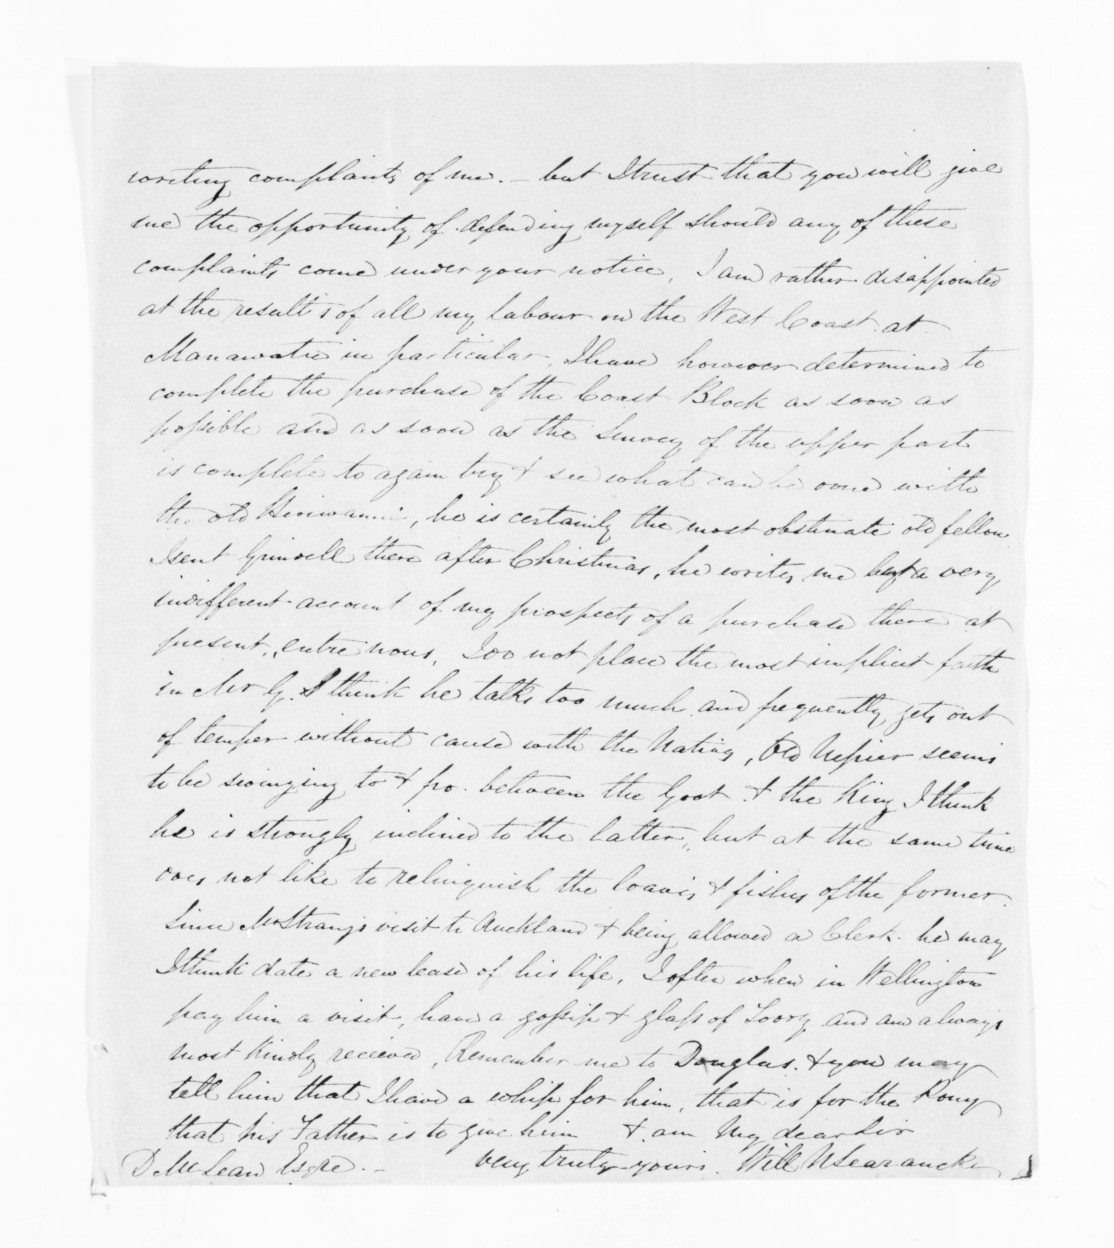 writing complaints of me. - but I trust that you will give
me the opportunity of defending myself should any of these
complaints come under your notice, I am rather disappointed
at the results of all my labour on the West Coast at
Manawatu in particular, I have however determined to
complete the purchase of the Coast Block as soon as
possible and as soon as the Survey of the upper part
is complete to again try & see what can be done with
the old Hiriwanui, he is certainly the most obstinate old fellow
I sent Grindell there after Christmas, he writes me but a very
indifferent account of my prospects of a purchase there at
present, entre nous, I do not place the most implicit faith
in Mr G. I think he talks too much and frequently gets out
of temper without cause with the Natives, Old Nepier seems
to be swinging to & fro between the Govt & the King I think
he is strongly inclined to the latter, but at the same time
does not like to relinquish the loaves & fishes of the former.
Since Mr Strang's visit to Auckland & being allowed a Clerk he may
I think date a new lease of his life, I often when in Wellington
pay him a visit, have a gossip & glass of Toddy and am always
most kindly received, Remember me to Douglas. & you may
tell him that I have a whip for him, that is for the Pony
that his Father is to give him & am My dear Sir
D. McLean Esqre. - very truly yours. Will N Searancke